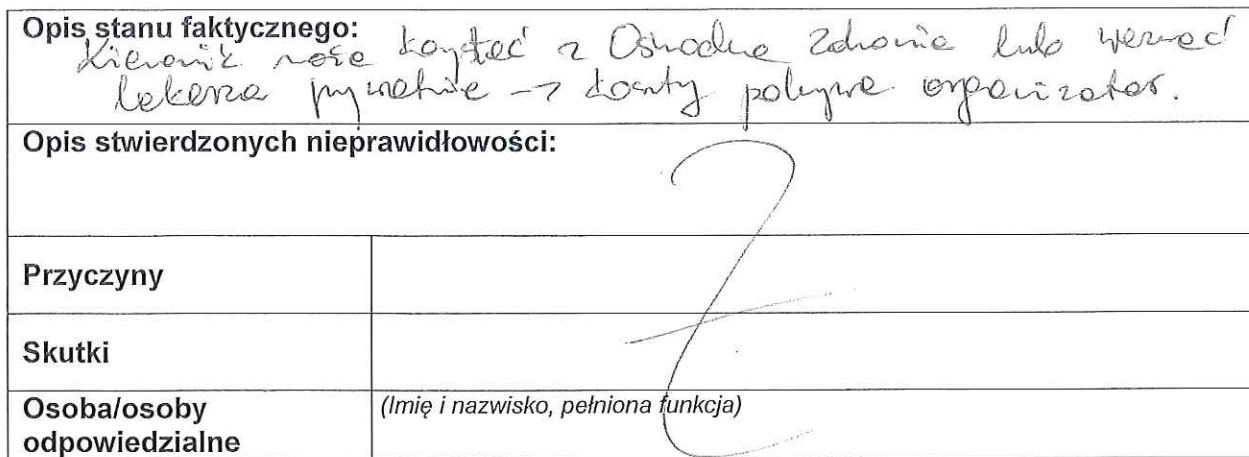 Opis stanu faktycznego:
Kierownik może korzystać z Ośrodka Zdrowia lub wezwać
lekarza prywatnie → koszty pokrywa organizator.
Opis stwierdzonych nieprawidłowości:
Przyczyny
Skutki
Osoba/osoby
odpowiedzialne
(Imię i nazwisko, pełniona funkcja)